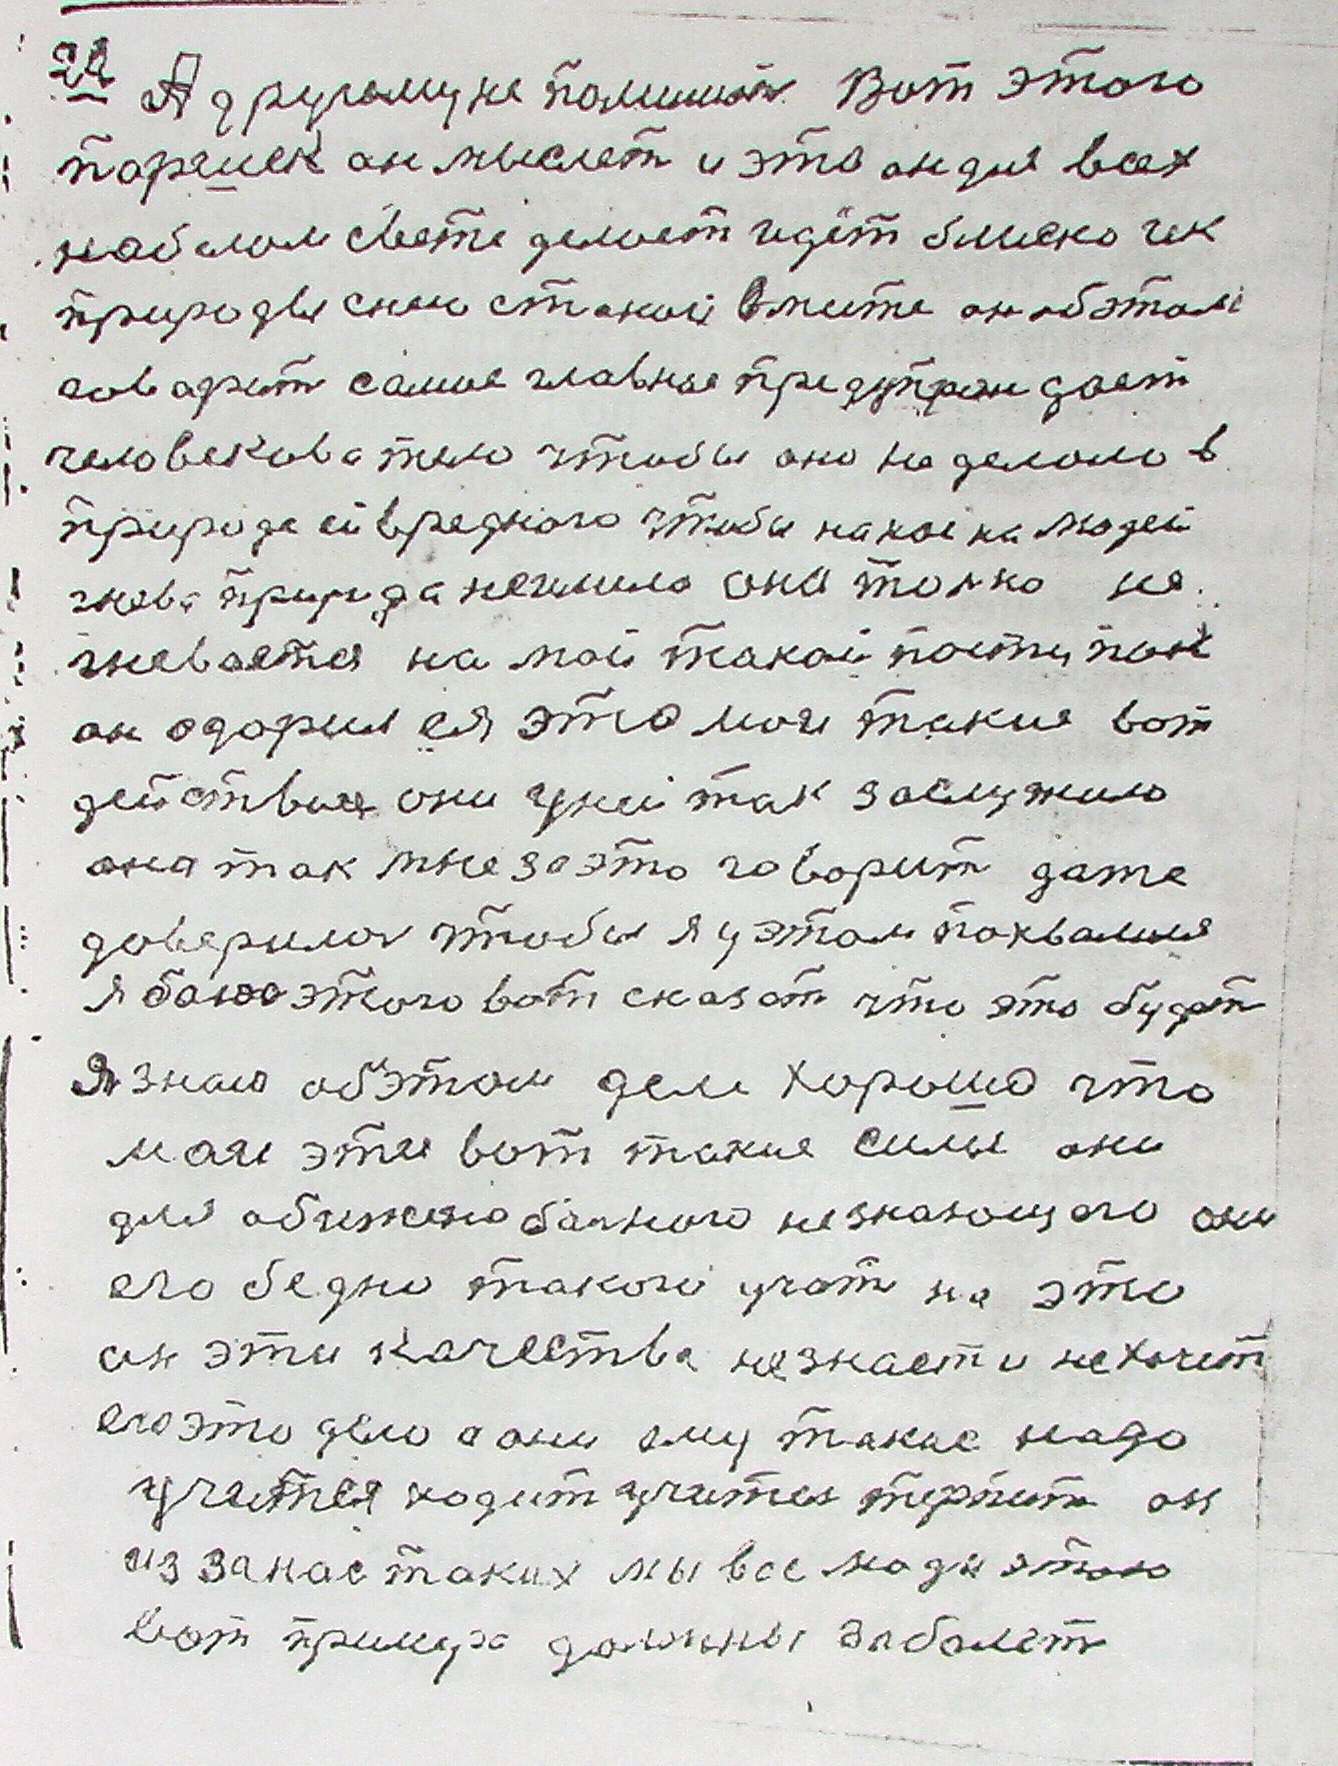 22 А другому не помишат. Вот этого
порящек он мыслет и это он для всех
на белом свете делает идёт блиско гек
природы сними стакой вмите он обэтом
говарит самое главные предупреждает
человекова тело чтобы оно не делало в
природе ей вредного чтобы на нас на людей
гнева природа неимела она толко не
гневается на мой такой поступок
он одорил ся это мои такие вот
действия они уней так заслужило
она так мне за это говорит даже
доверила чтобы я у этом похвалился
я баюс этого вот сказат что это будет
Я знаю обэтом деле хорошо что
маи эти вот такие силы они
для обижено болного незнающего они
его бедно такого учат на это
он эти качества незнает и нехочет
его это дело а они ему такие надо
учится ходит учится терпит он
из за нас таких мы все люди этого
вот примера должны заболет